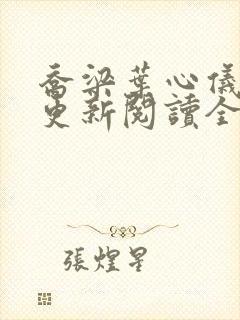 喬梁葉心儀
更新閱讀全
張煌星